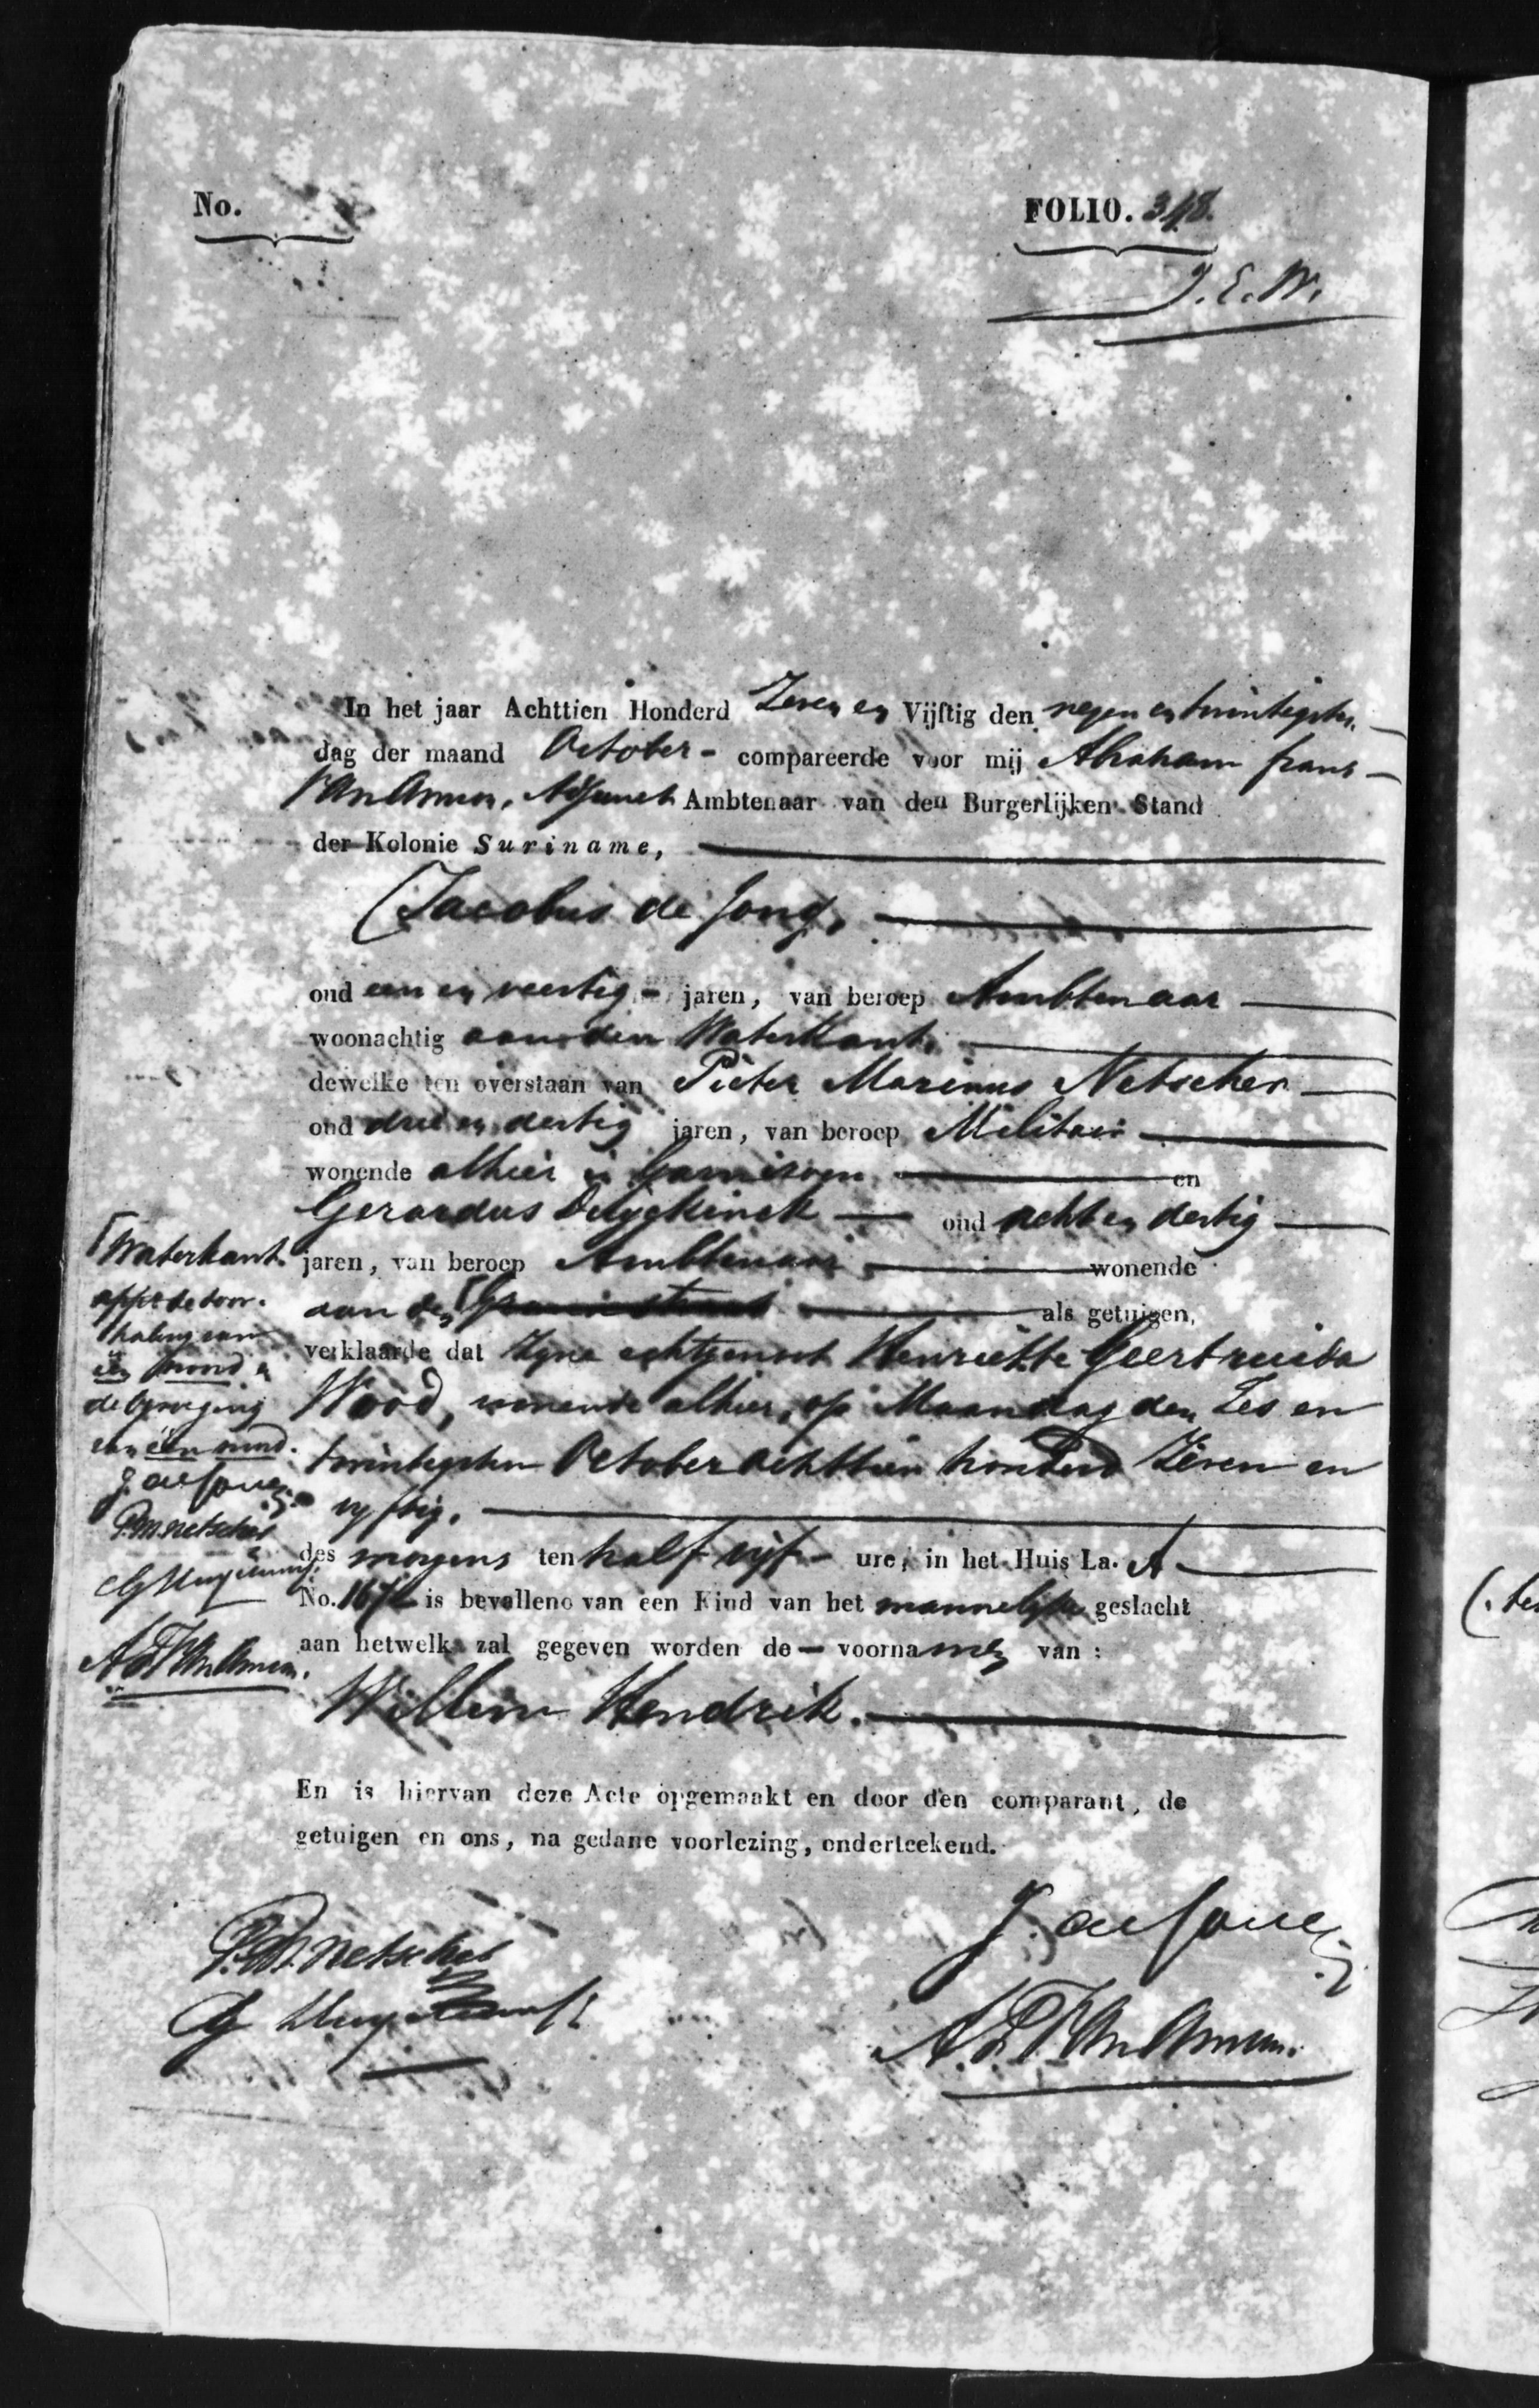 No.
FOLIO. 348.
J. E. W.
In het jaar Achttien Honderd Zeven en Vijftig den negen en twintigsten
dag der maand October - compareerde voor mij Abraham frans
Van Ammon, Adjunct Ambtenaar van den Burgerlijken Stand
der Kolonie Suriname,
Jacobus de Jong,
oud een en veertig - jaren, van beroep Ambtenaar
woonachtig aan den Waterkant,
dewelke ten overstaan van Pieter Marinus Netscher
oud drie en dertig jaren, van beroep Militair
wonende alhier in Garnizoen en
Gerardus oud acht en dertig
jaren, van beroep Ambtenaar wonende
aan den als getuigen,
verklaarde dat zyne echtgenoot Henriette Geertruida
Wood, wonende alhier, op Maandag den Zes en
twintigsten October achttien honderd Zeven en
vyftig.
des morgens ten half vyf - ure, in het Huis La. A
No. is bevallene van een Kind van het mannelyke geslacht
aan hetwelk zal gegeven worden de - voornamen van :
Willem Hendrik.
Waterkant.
de door-
haling van
één woord &
de byvoeging
van één woord.
J. de Jong
P.M. Netscher
A F Van Ammon.
En is hiervan deze Acte opgemaakt en door den comparant, de
getuigen en ons, na gedane voorlezing, onderteekend.
J. de Jong
P.M. Netscher
A. F. Van Ammon.